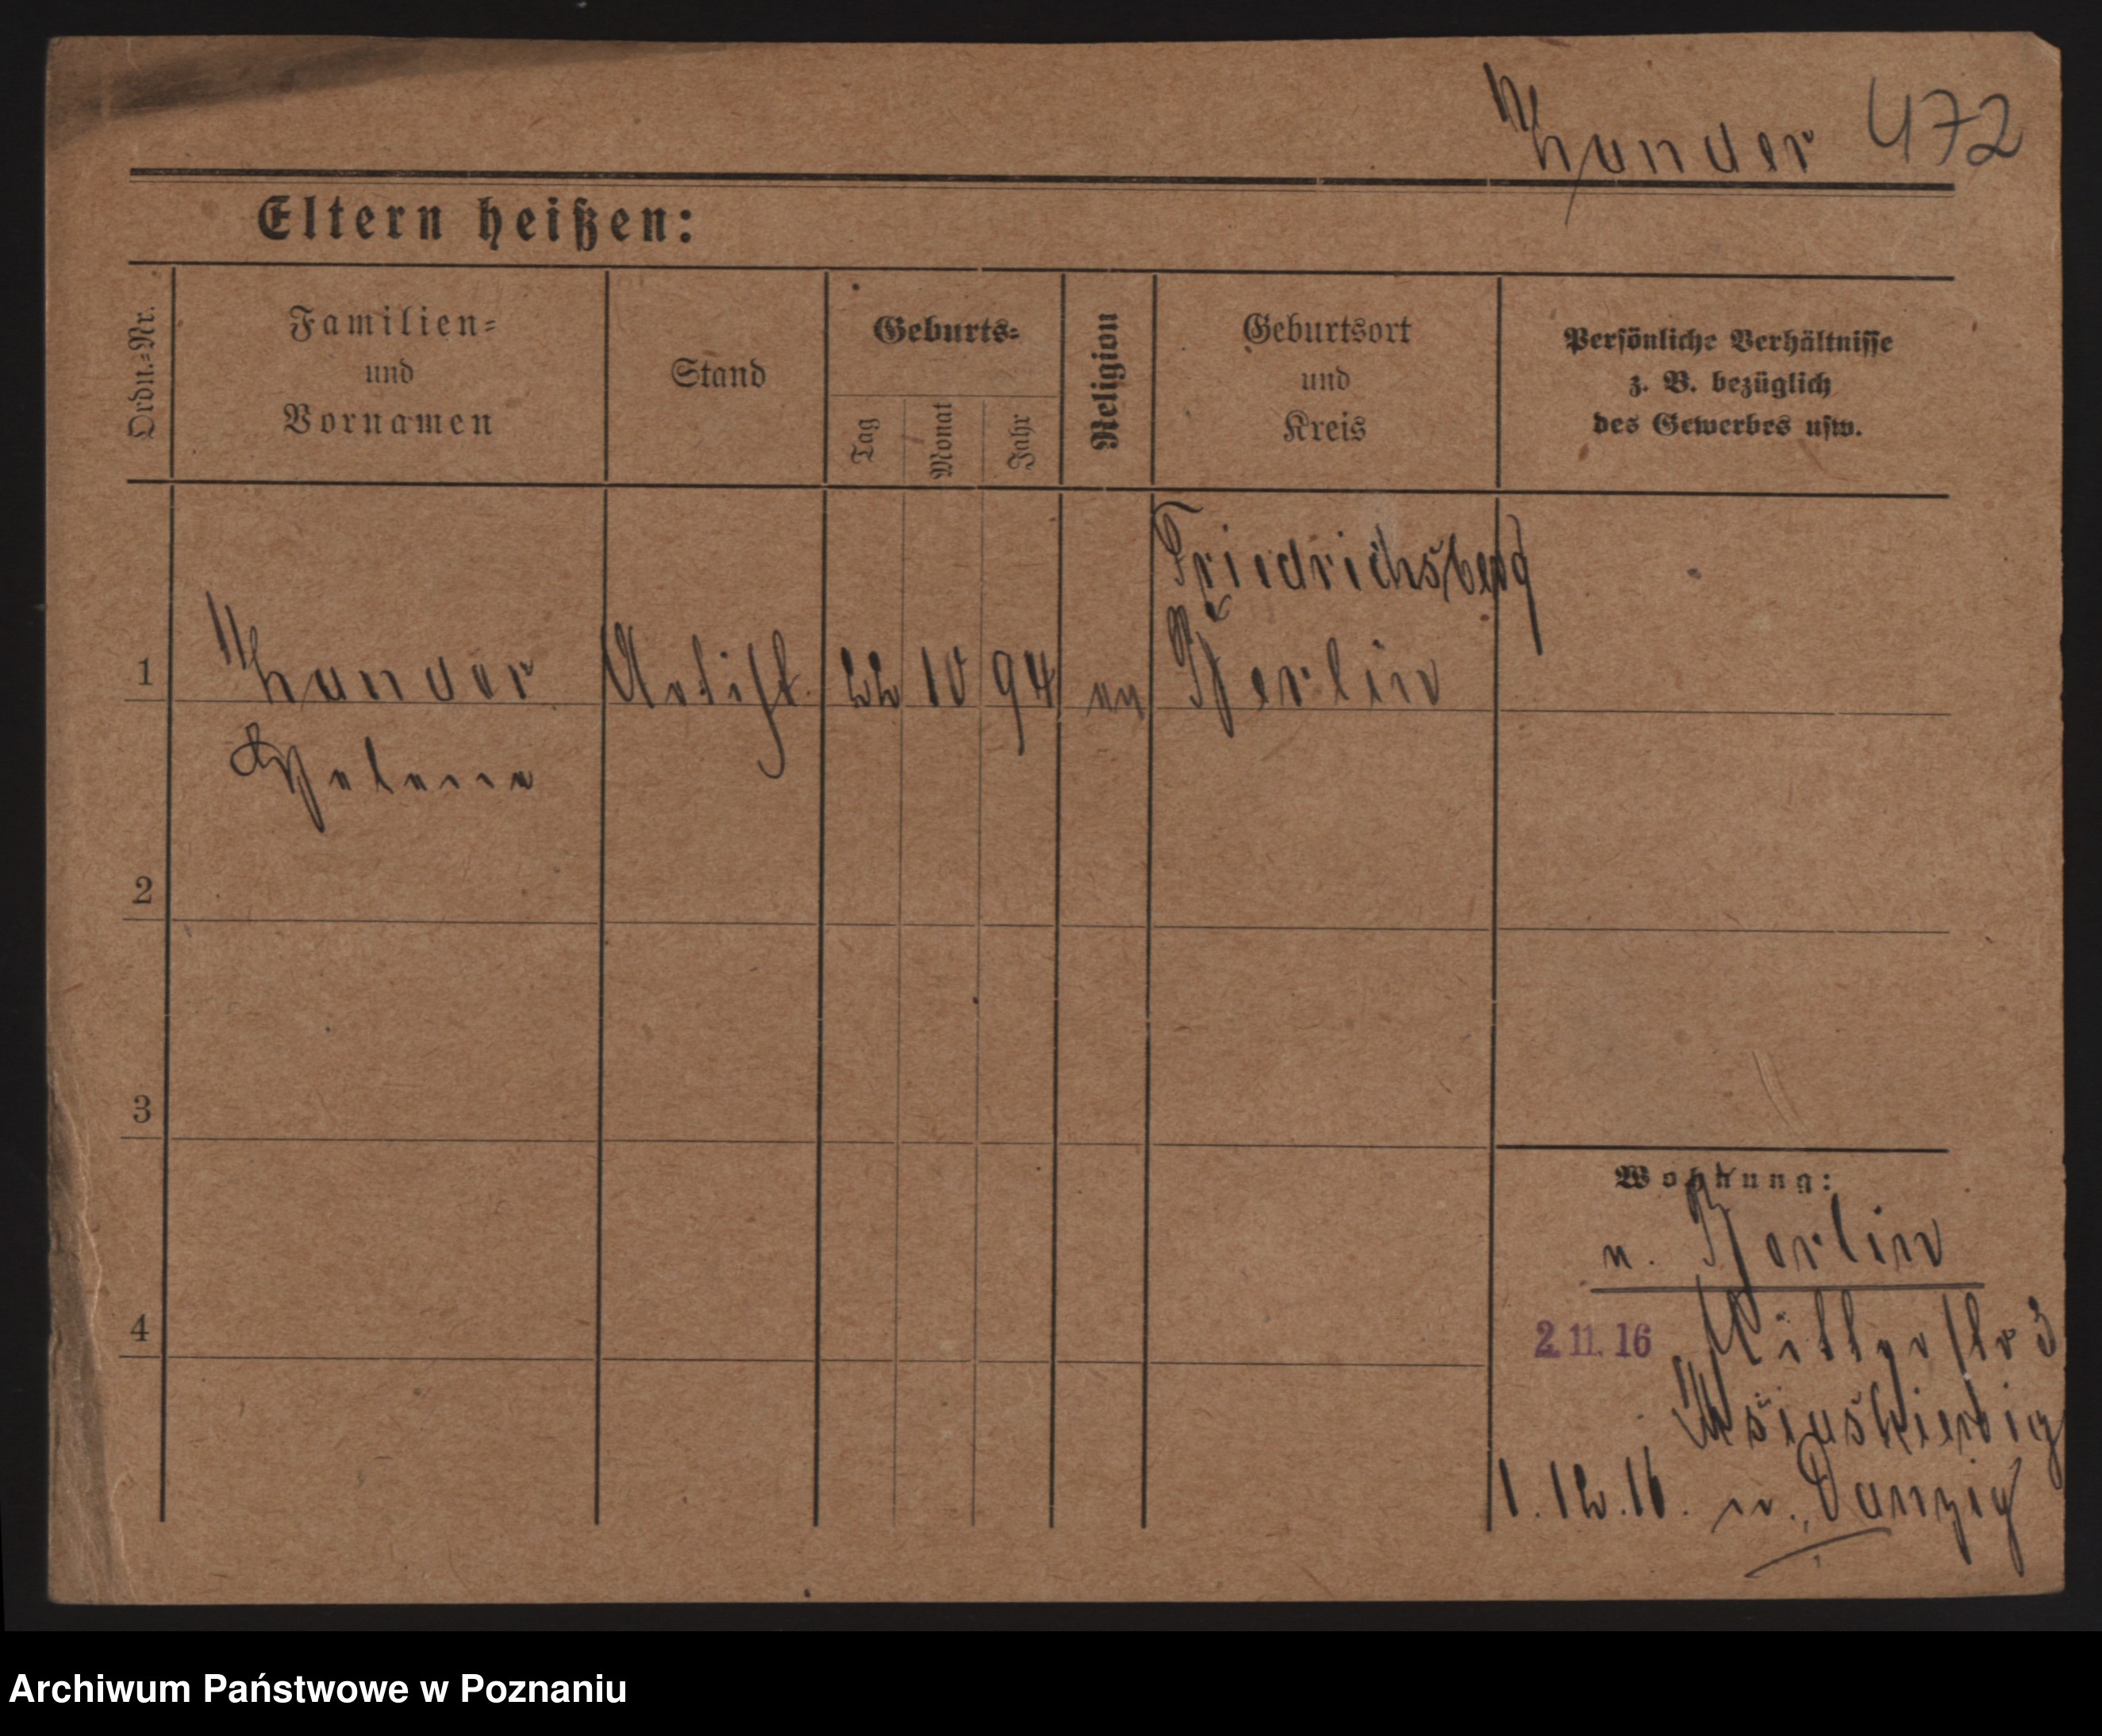 472
Eltern heißen:
Ordn.=Nr.
Familien=
und
Vornamen
Stand
Geburts=
Tag
Monat
Jahr
Religion
Geburtsort
und
Kreis
Persönliche Verhältnisse
z. B. bezüglich
des Gewerbes usw.
Friedrichsberg
1
Artist. 22 10 94 Berlin
Helene
2
3
4
Wohnung:
n. Berlin
2. 11. 16 Ritterstr 3
1. 12. 16. n. Danzig
Archiwum Państwowe w Poznaniu